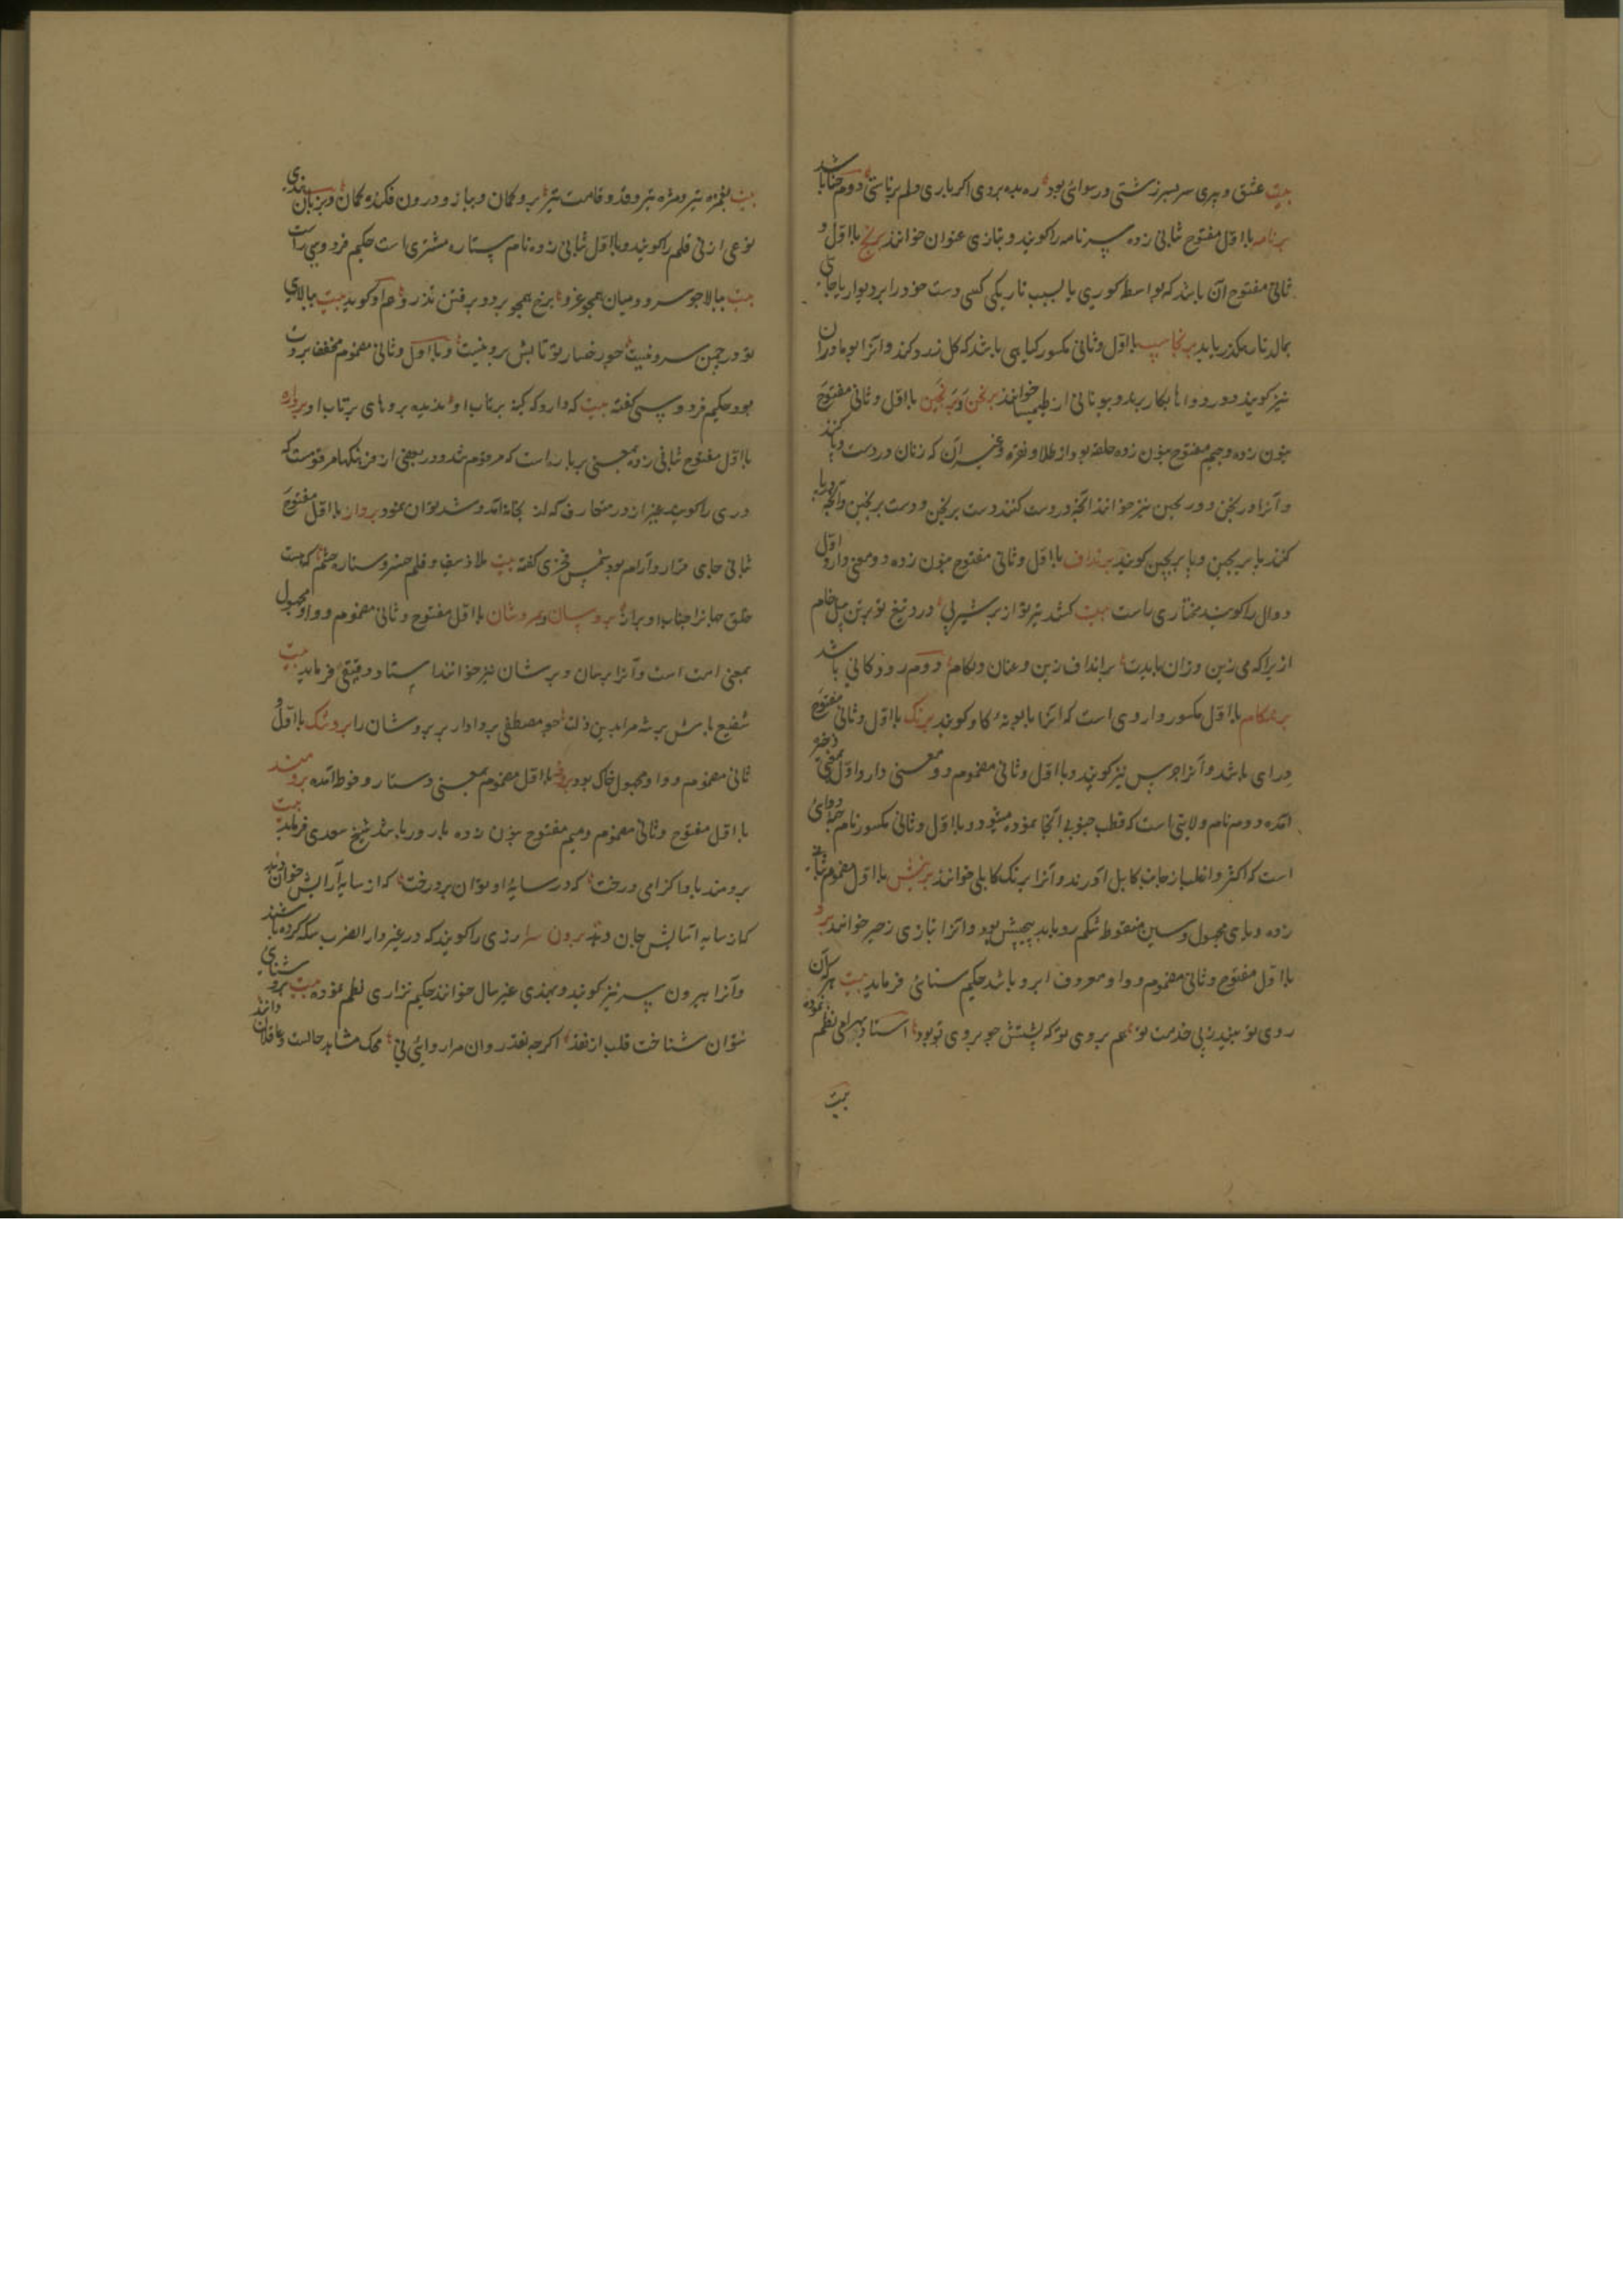 بیت عشق و پیری سر بسر زشتی و رسوائی بود ره بده بردی اکر یاری دلم برناستی دوم حنا باشد
برنامه با اول مفتوح ثانی زده سر نامه را کویند و بتازی عنوان خوانند برنج با اول و
ثانی مفتوح آن باشد که بواسطه کوری یا بسبب تاریکی کسی دست خود را بر دیوار یا جای
بمالد تا رهکذر یابد برنجاسپ با اول و ثانی مکسور کیاهی باشد که کل زرد کند و آنرا بوی مادران
نیز کویند و در دواها بکار برند و بیونانی ارطماسیا خوانند برنجن و برنجین با اول و ثانی مفتوح
بنون زده و جیم مفتوح بنون زده حلقه بود از طلا و نقره و غیر آن که زنان در دست و پا کنند
و آنرا ورنجن و ورنجین نیز خوانند آنچه در دست کنند دست برنجن و دست برنجین و آنچه در پا
کنند پا برنجن و پا برنجین کویند برنداف با اول و ثانی مفتوح بنون زده دو معنی دارد اول
دوال را کویند مختاری راست بیت کشد تیر تو از بر شیر پی درد تیغ تو بر تن پیل خام
ازیرا که می زین و زان بایدت برنداف زین و عنان و لکام دوم رودکانی باشد
با اول مکسور داروی است که آنرا بابونه کاو کویند برنک با اول و ثانی مفتوح
درای باشد و آنرا جرس نیز کویند و با اول و ثانی مضموم دو معنی دارد اول بمعنی ذخیره
آمده دوم نام ولایتی است که قطب جنوبی آنجا نموده میشود و با اول و ثانی مکسور نام دوای
است که اکثر و اغلب از جانب کابل آورند و آنرا برنک کابلی خوانند با اول مضموم ثانی
زده و یای مجهول و سین منقوط شکم روباید پیچش بود و آنرا بتازی زحیر خوانند برو
با اول مفتوح و ثانی مضموم و واو معروف ابرو باشد حکیم سنائی فرماید بیت هر که آن
روی تو بیند ز پی خدمت تو هم بروی تو که پشتش چو بروی تو بود استاد بهرامی نظم نموده
بیت
بیت بغمزه تیر و مژه تیر و قد و قامت تیر برو کمان و بباز و درون فکنده کمان و بزبان هندی
نوعی از نی قلم را کویند و با اول ثانی زده نام ستاره مشتری است حکیم فردوسی راست
بیت ببالا چو سرو و میان همچو غرو برخ همچو برو و برفتن تذرو هم او کوید بیت ببالای
تو در چمن سرو نیست چو رخسار تو تابش برو نیست و با اول و ثانی مضموم مخفف بروت
بود حکیم فردوسی کفته بیت که دارد که کینه برتاب او ندیده بروهای پرتاب او برواره
با اول مفتوح ثانی زده بمعنی برباره است که مرقوم شد و در بعضی از فرهنکها مرقومست که
دری را کویند بغیر از در متعارف که از آنجا آمد و شد توان نمود برواز با اول مفتوح
ثانی جای قرار و آرام بود شمس فخری کفته بیت ملاذ سیف و قلم خسرو ستاره حشم که هست
خلق جهانرا جناب او برواز بروسان و بروشان با اول مفتوح و ثانی مضموم و واو مجهول
بمعنی امت است و آنرا برسان و برشان نیز خوانند استاد دقیقی فرماید بیت
شفیع باش بر شه مرا بدین زلت چو مصطفی بر دادار بر بروشان را بروشک با اول و
ثانی مضموم و واو مجهول خاک بود با اول مضموم بمعنی دستار و فوطه آمده برومند
با اول مفتوح و ثانی مضموم و میم مفتوح بنون زده بارور باشد شیخ سعدی فرماید بیت
برومند بادا کرامی درخت که در سایهٔ او توان برد رخت که از سایه آرایش خوان دهد
که از سایه آسایش جان دهد برون سرا زری را کویند که در غیر دار الضرب سکه کرده باشند
و آنرا بیرون سر نیز کویند و بهندی غیر سال خوانند حکیم نزاری نظم نموده بیت بروشنای
نتوان شناخت قلب از نقد اکرچه نقد روان مرا روائی نی محک مشاهد حالست و عاقلان دانند